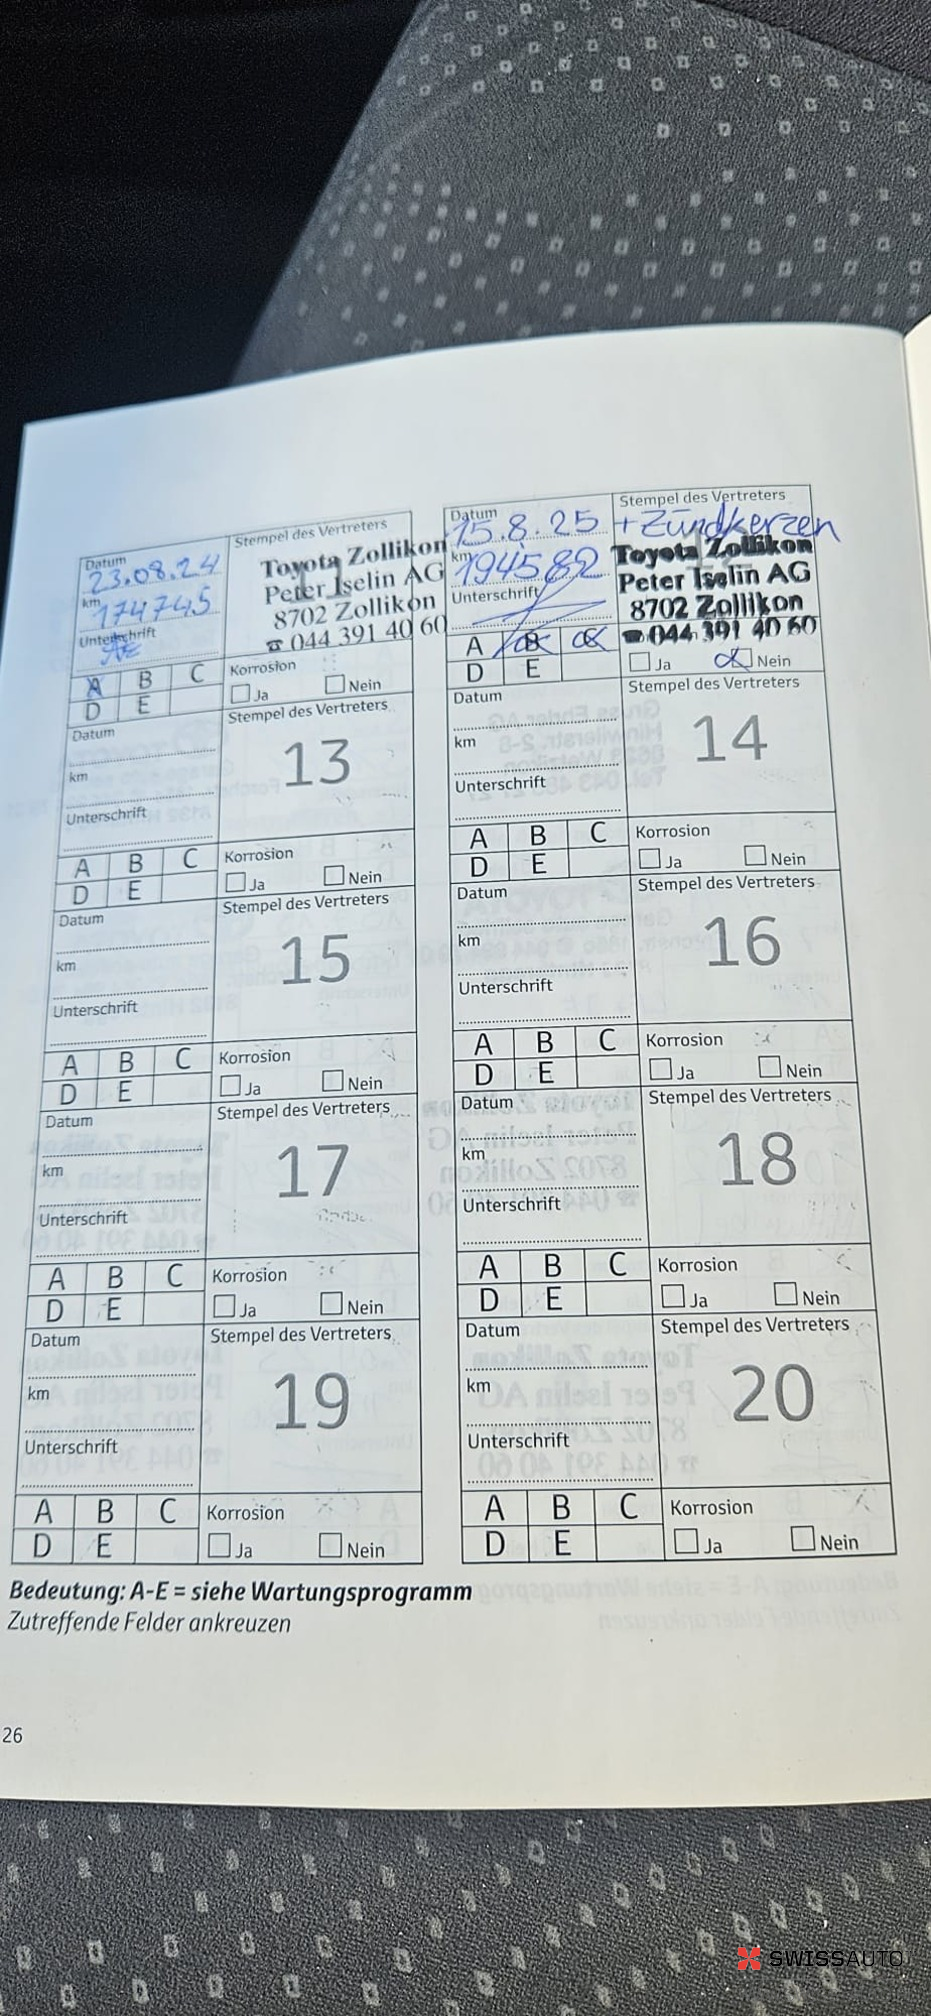 Datum
23.08.24
km
174745
Unterschrift
Stempel des Vertreters
Toyota Zollikon
Peter Iselin AG
8702 Zollikon
☎ 044 391 40 60
A B C
D E
Korrosion
Ja Nein
Datum
15.8.25
km
194582
Unterschrift
Stempel des Vertreters
+ Zündkerzen
Toyota Zollikon
Peter Iselin AG
8702 Zollikon
☎ 044 391 40 60
A B C
D E
Ja Nein
Datum
km
Unterschrift
Stempel des Vertreters
13
A B C
D E
Korrosion
Ja Nein
Datum
km
Unterschrift
Stempel des Vertreters
14
A B C
D E
Korrosion
Ja Nein
Datum
km
Unterschrift
Stempel des Vertreters
15
A B C
D E
Korrosion
Ja Nein
Datum
km
Unterschrift
Stempel des Vertreters
16
A B C
D E
Korrosion
Ja Nein
Datum
km
Unterschrift
Stempel des Vertreters
17
A B C
D E
Korrosion
Ja Nein
Datum
km
Unterschrift
Stempel des Vertreters
18
A B C
D E
Korrosion
Ja Nein
Datum
km
Unterschrift
Stempel des Vertreters
19
A B C
D E
Korrosion
Ja Nein
Datum
km
Unterschrift
Stempel des Vertreters
20
A B C
D E
Korrosion
Ja Nein
Bedeutung: A-E = siehe Wartungsprogramm
Zutreffende Felder ankreuzen
26
SWISSAUTO